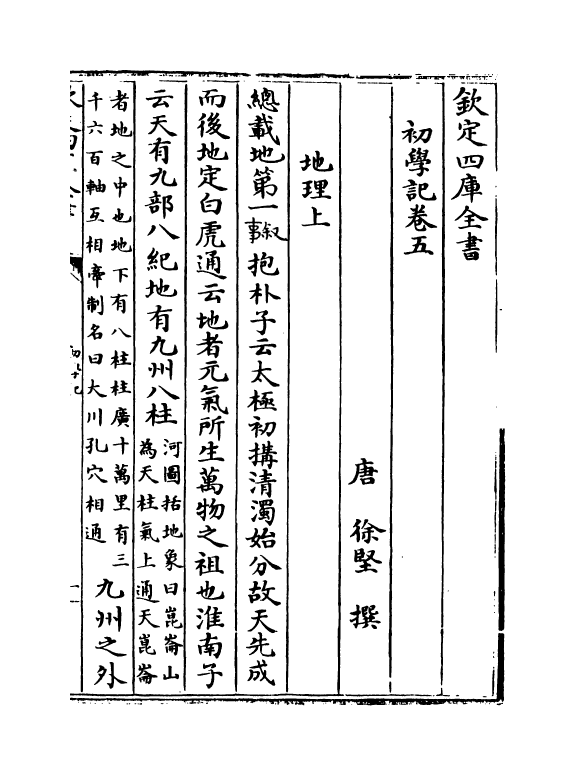 欽定四庫全書
初學記卷五
唐 徐堅 撰
地理上
總載地第一
叙
事
抱朴子云太極初搆清濁始分故天先成
而後地定白虎通云地者元氣所生萬物之祖也淮南子
云天有九部八紀地有九州八柱
河圖括地象曰崑崙山
為天柱氣上通天崑崙
者地之中也地下有八柱柱廣十萬里有三
千六百軸互相牽制名曰大川孔穴相通
九州之外